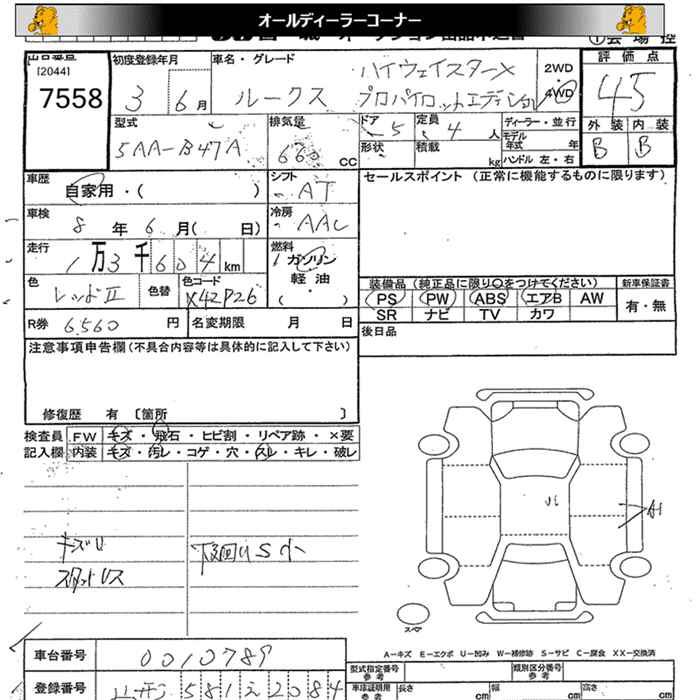 オールディーラーコーナー
出品番号
[2044]
7558
初度登録年月
3 6月
車名・グレード
ルークス
ハイウェイスターX
プロパイロットエディション
2WD
4WD
評価点
45
外装 内装
B B
型式
5AA-B47A
排気量
660 cc
ドア
5
定員
4人
ディーラー・並行
モデル年式 年
形状
積載 kg
ハンドル 左・右
車歴
自家用・( )
シフト
AT
セールスポイント (正常に機能するものに限ります)
車検
8年6月( 日)
冷房
AAC
走行
1万3千604km
燃料
ガソリン
軽油
・
( )
色
レッドⅡ
色替
色コード
X42P26
装備品 (純正品に限り○をつけてください)
PS PW ABS エアB AW
SR ナビ TV カワ
新車保証書
有・無
R券 6.560 円
名変期限 月 日
後日品
注意事項申告欄(不具合内容等は具体的に記入して下さい)
修復歴 有 〔箇所 〕
検査員記入欄
FW キズ・飛石・ヒビ割・リペア跡・×要
内装 キズ・汚レ・コゲ・穴・スレ・キレ・破レ
キズU
下回りS小
A1
スペア
A-キズ E-エクボ U-凹み W-補修跡 S-サビ C-腐食 XX-交換済
車台番号
0010789
登録番号
581 2084
型式指定番号
参考
類別区分番号
参考
車庫証明用
参考
長さ cm
幅 cm
高さ cm